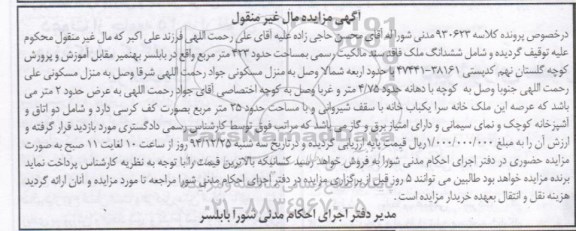 آگهی مزایده مال غیر منقول
درخصوص پرونده کلاسه ۹۳۰۶۲۳ مدنی شورا له آقای محسن حاجی زاده علیه آقای علی رحمت اللهی فرزند علی اکبر که مال غیر منقول محکوم
علیه توقیف گردیده و شامل ششدانگ ملک فاقد سند مالکیت رسمی بمساحت حدود ۴۲۳ متر مربع واقع در بابلسر بهنمیر مقابل آموزش و پرورش
کوچه گلستان نهم کدپستی ۳۸۱۶۱-۴۷۴۴۱ با حدود اربعه شمالا وصل به منزل مسکونی جواد رحمت اللهی شرقا وصل به منزل مسکونی علی
رحمت اللهی جنوبا وصل به کوچه با دهانه حدود ۴/۷۵ متر و غربا وصل به کوچه اختصاصی آقای جواد رحمت اللهی به عرض حدود ۲ متر می
باشد که عرصه این ملک خانه سرا یکباب خانه با سقف شیروانی و با مساحت حدود ۲۵ متر مربع بصورت کف کرسی دارد و شامل دو اتاق و
آشپزخانه کوچک و نمای سیمانی و دارای امتیاز برق و گاز می باشد که مراتب فوق توسط کارشناس رسمی دادگستری مورد بازدید قرار گرفته و
ارزش آن را به مبلغ ۱/۰۰۰/۰۰۰/۰۰۰ ریال قیمت پایه ارزیابی گردیده و در تاریخ سه شنبه ۹۳/۱۲/۲۵ روز از ساعت ۱۰ لغایت ۱۱ صبح به صورت
مزایده حضوری در دفتر اجرای احکام مدنی شورا به فروش خواهد رسید کسانیکه بالاترین قیمت را با توجه به نظریه کارشناس پرداخت نماید
برنده مزایده خواهد بود طالبین می توانند ۵ روز قبل از برگزاری مزایده در دفتر اجرای احکام مدنی شورا مراجعه تا مورد مزایده و آنان ارائه گردید
هزینه نقل و انتقال بعهده خریدار مزایده است.
مدیر دفتر اجرای احکام مدنی شورا بابلسر
۰۲۱-۸۸۳۴۹۶۷۰-۵